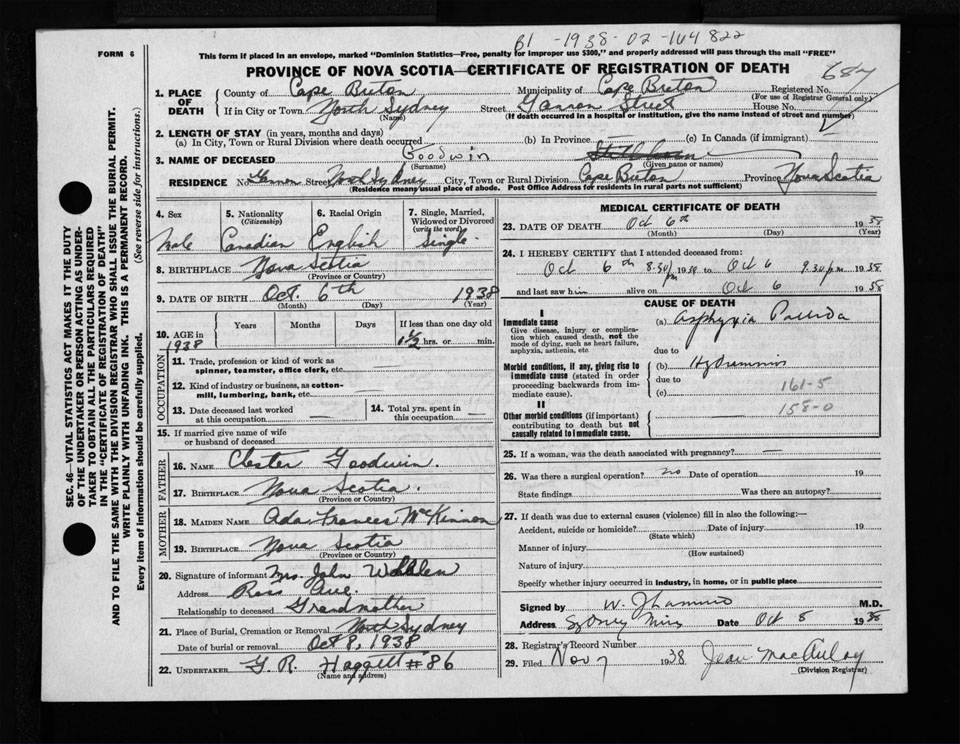 B1-1938-02-164822
FORM 6
This form if placed in an envelope, marked "Dominion Statistics—Free, penalty for improper use $300," and properly addressed will pass through the mail "FREE"
PROVINCE OF NOVA SCOTIA—CERTIFICATE OF REGISTRATION OF DEATH
687
1. PLACE OF DEATH
County of Cape Breton Municipality of Cape Breton Registered No.
(For use of Registrar General only)
If in City or Town North Sydney Street Street House No.
(Name) (If death occurred in a hospital or institution, give the name instead of street and number)
2. LENGTH OF STAY (in years, months and days)
(a) In City, Town or Rural Division where death occurred (b) In Province — (c) In Canada (if immigrant)
3. NAME OF DECEASED Goodwin Stillborn
(Surname) (Given name or names)
RESIDENCE No. Street North Sydney City, Town or Rural Division Cape Breton Province Nova Scotia
(Residence means usual place of abode. Post Office Address for residents in rural parts not sufficient)
4. Sex Male
5. Nationality (Citizenship) Canadian
6. Racial Origin English
7. Single, Married, Widowed or Divorced (write the word) Single
8. BIRTHPLACE Nova Scotia
(Province or Country)
9. DATE OF BIRTH Oct. 6th 1938
(Month) (Day) (Year)
10. AGE in 1938
Years Months Days If less than one day old
1½ hrs. or min.
OCCUPATION
11. Trade, profession or kind of work as spinner, teamster, office clerk, etc. —
12. Kind of industry or business, as cotton-mill, lumbering, bank, etc. —
13. Date deceased last worked at this occupation —
14. Total yrs. spent in this occupation —
15. If married give name of wife or husband of deceased
FATHER
16. NAME Chester Goodwin.
17. BIRTHPLACE Nova Scotia.
(Province or Country)
MOTHER
18. MAIDEN NAME Ada Frances McKinnon
19. BIRTHPLACE Nova Scotia
(Province or Country)
20. Signature of informant Mrs. John
Address Ross Ave.
Relationship to deceased Grandmother
21. Place of Burial, Cremation or Removal North Sydney
Date of burial or removal Oct 8, 1938
22. UNDERTAKER G. R. Haggett #86
(Name and address)
MEDICAL CERTIFICATE OF DEATH
23. DATE OF DEATH Oct 6th 1938
(Month) (Day) (Year)
24. I HEREBY CERTIFY that I attended deceased from:
Oct 6th 8.30 pm 1938 to Oct 6 9.30 pm 1938
and last saw him alive on Oct 6 1938
CAUSE OF DEATH
I
Immediate cause
Give disease, injury or complication which caused death, not the mode of dying, such as heart failure, asphyxia, asthenia, etc
(a) Asphyxia
due to
Morbid conditions, if any, giving rise to immediate cause (stated in order proceeding backwards from immediate cause).
(b)
due to
(c)
161-5
158-0
II
Other morbid conditions (if important) contributing to death but not causally related to immediate cause.
25. If a woman, was the death associated with pregnancy? —
26. Was there a surgical operation? no Date of operation 19
State findings Was there an autopsy?
27. If death was due to external causes (violence) fill in also the following:—
Accident, suicide or homicide? Date of injury 19
(State which)
Manner of injury
(How sustained)
Nature of injury
Specify whether injury occurred in industry, in home, or in public place
Signed by M.D.
Address Sydney Mines Date Oct 8 1938
28. Registrar's Record Number
29. Filed Nov 7 1938 Jean MacAulay
(Division Registrar)
SEC. 46—VITAL STATISTICS ACT MAKES IT THE DUTY
OF THE UNDERTAKER OR PERSON ACTING AS UNDER-
TAKER TO OBTAIN ALL THE PARTICULARS REQUIRED
IN THE "CERTIFICATE OF REGISTRATION OF DEATH"
AND TO FILE THE SAME WITH THE DIVISION REGISTRAR WHO SHALL ISSUE THE BURIAL PERMIT.
WRITE PLAINLY WITH UNFADING INK. THIS IS A PERMANENT RECORD.
Every item of information should be carefully supplied. (See reverse side for instructions.)